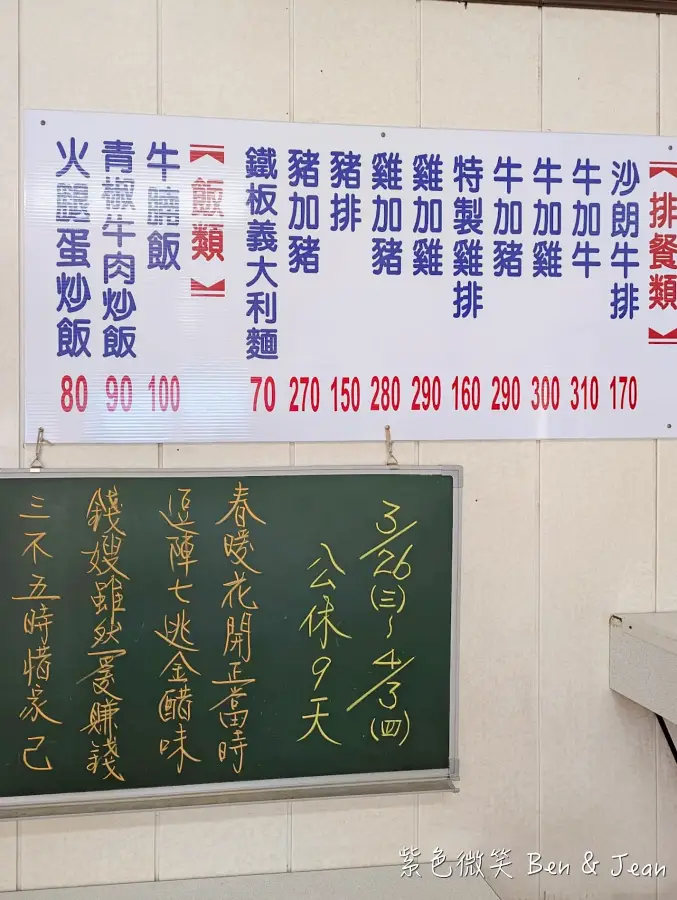 【排餐類】
沙朗牛排 170
牛加牛 310
牛加雞 300
牛加豬 290
特製雞排 160
雞加雞 290
雞加豬 280
豬排 150
豬加豬 270
鐵板義大利麵 70
【飯類】
牛腩飯 100
青椒牛肉炒飯 90
火腿蛋炒飯 80
3/26(三)~4/3(四)
公休9天
春暖花開正當時
逗陣七逃金醋味
錢嫂雖然愛賺錢
三不五時惜家己
紫色微笑 Ben & Jean